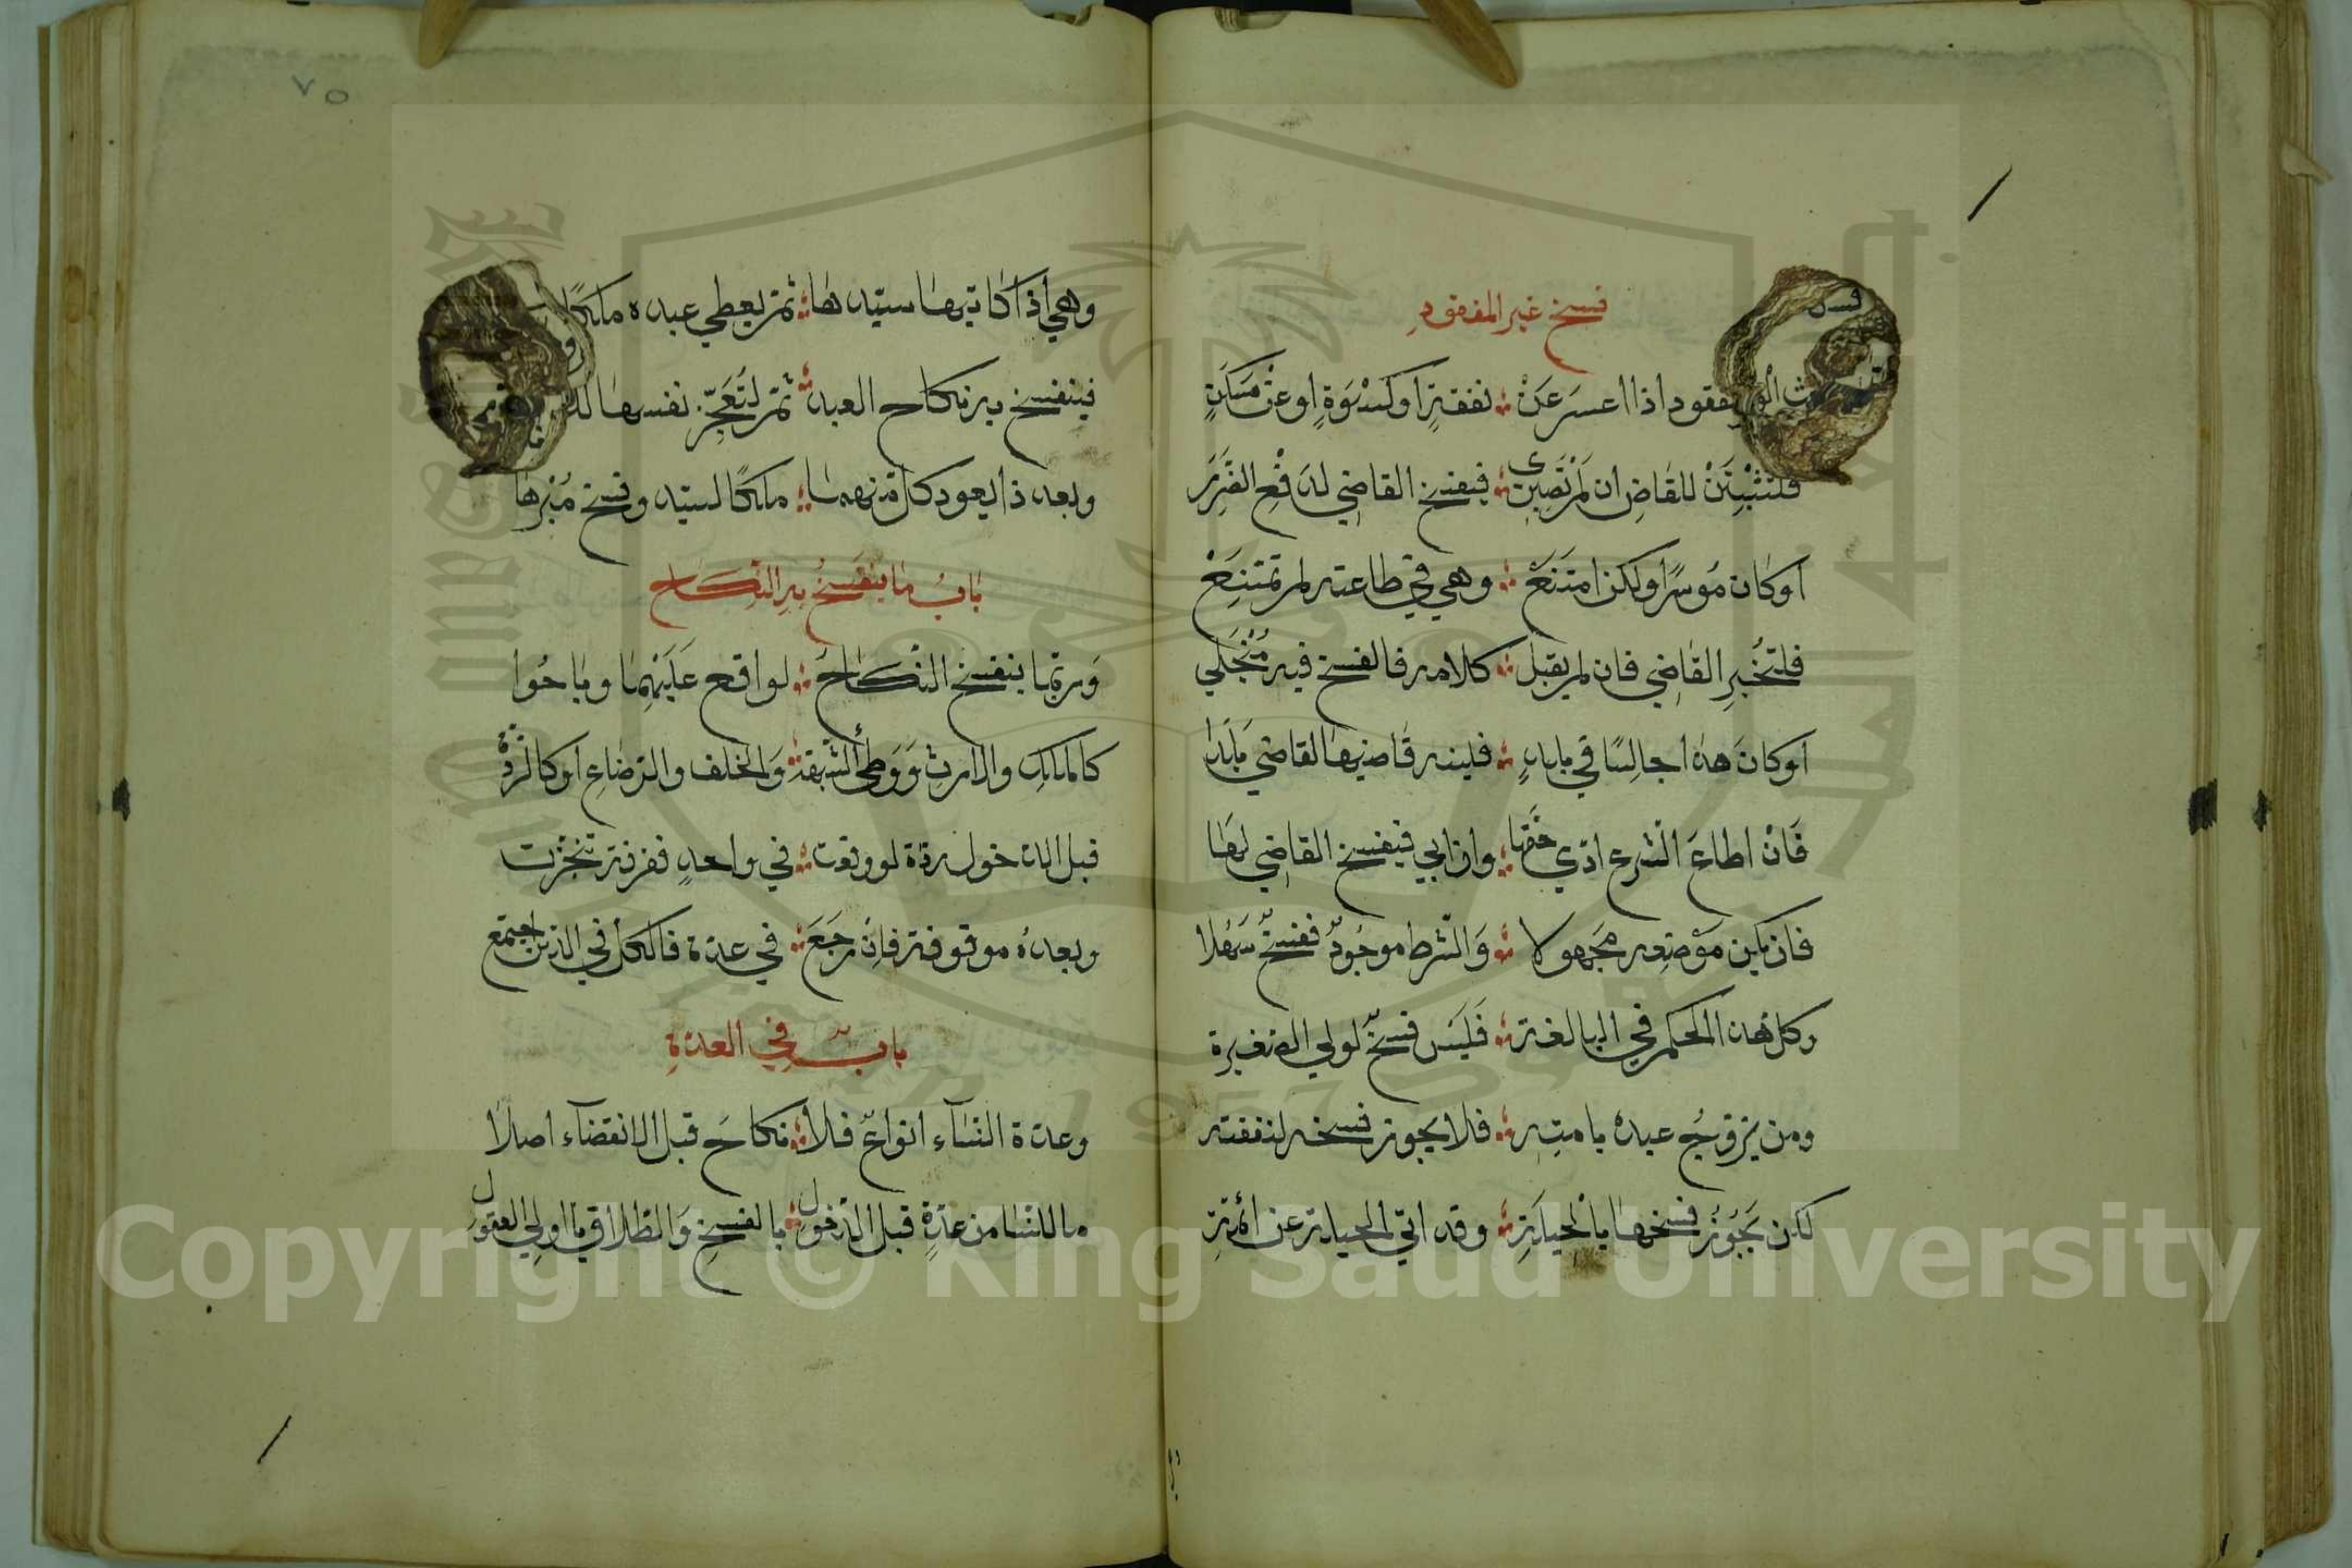 فسخ غير المفقودِ
المفقود اذا اعسرَ عَنْ ؞ نفقةٍ او كسْوَةٍ او عن مَسكَنٍ
فلتثْبِتَنْ للقاضِ ان لم تَصبِرِى ؞ فيفسخ القاضي لدَفْعِ الضَّرَرِ
او كان مُوسرًا ولكن امتَنَعْ ؞ وهي في طاعته لم تمتنِعْ
فلتخُبرِ القاضي فان لم يقبل ؞ كلامه فالفسخ فيه مُنْجَلي
او كانَ هذا جالِسًا في بلدٍ ؞
فَانْ اطاعَ الشرع ادّي حَقها ؞ وان ابي فيفسخ القاضي لهَا
فان يكن مَوْضِعه مَجهولا ؞ وَالشرط موجُودٌ ففسخٌ سَهُلا
وكل هذا الحكم في البالغة ؞ فَلَيسَ فسخٌ لولي الصغيرة
ومن يزوّجُ عبدهُ بامتِه ؞ فلا يجوز فسخه لنفقته
لكن يَجُوزُ فسخها بالحيلَةِ ؞ وقد اتي الحيلة عن ائمّةِ
٧٥
وهي اذا كاتبها سيّدهَا ؞ ثم يعطي عبده ملكًا
فينفسخ به نكاح العبد ؞ ثم لتُعَجِّزْ نفسها
وبعد ذا يعود كل منهما ؞ ملكًا لسيّد وفسخ مُبْرهَا
بَابُ ما ينفسخُ به النكَاح
وَربّما ينفسخ النّكاحُ ؞ لواقع عَلَيْهِما وبَاحُوا
كالملكِ والارثِ وَوَطئ الشّبهةْ ؞ وَالخلف والرّضاعِ او كالرّدّةْ
قبل الدخول ردّة لو وقعت ؞ في واحدٍ ففرقة تنجّزت
وبعدهُ موقوفة فانْ رجَعَ ؞ في عدّة فالكل في الدّين اجتمع
بابٌ في العدّةِ
وعدّة النّسَاء انواعٌ فلا ؞ نكاحَ قبل الانقضاء اصلا
ما للنّسا من عدّةٍ قبل الدّخول ؞ بالفسخِ وَالطلاق يا اولي العقول
Copyright © King Saud University